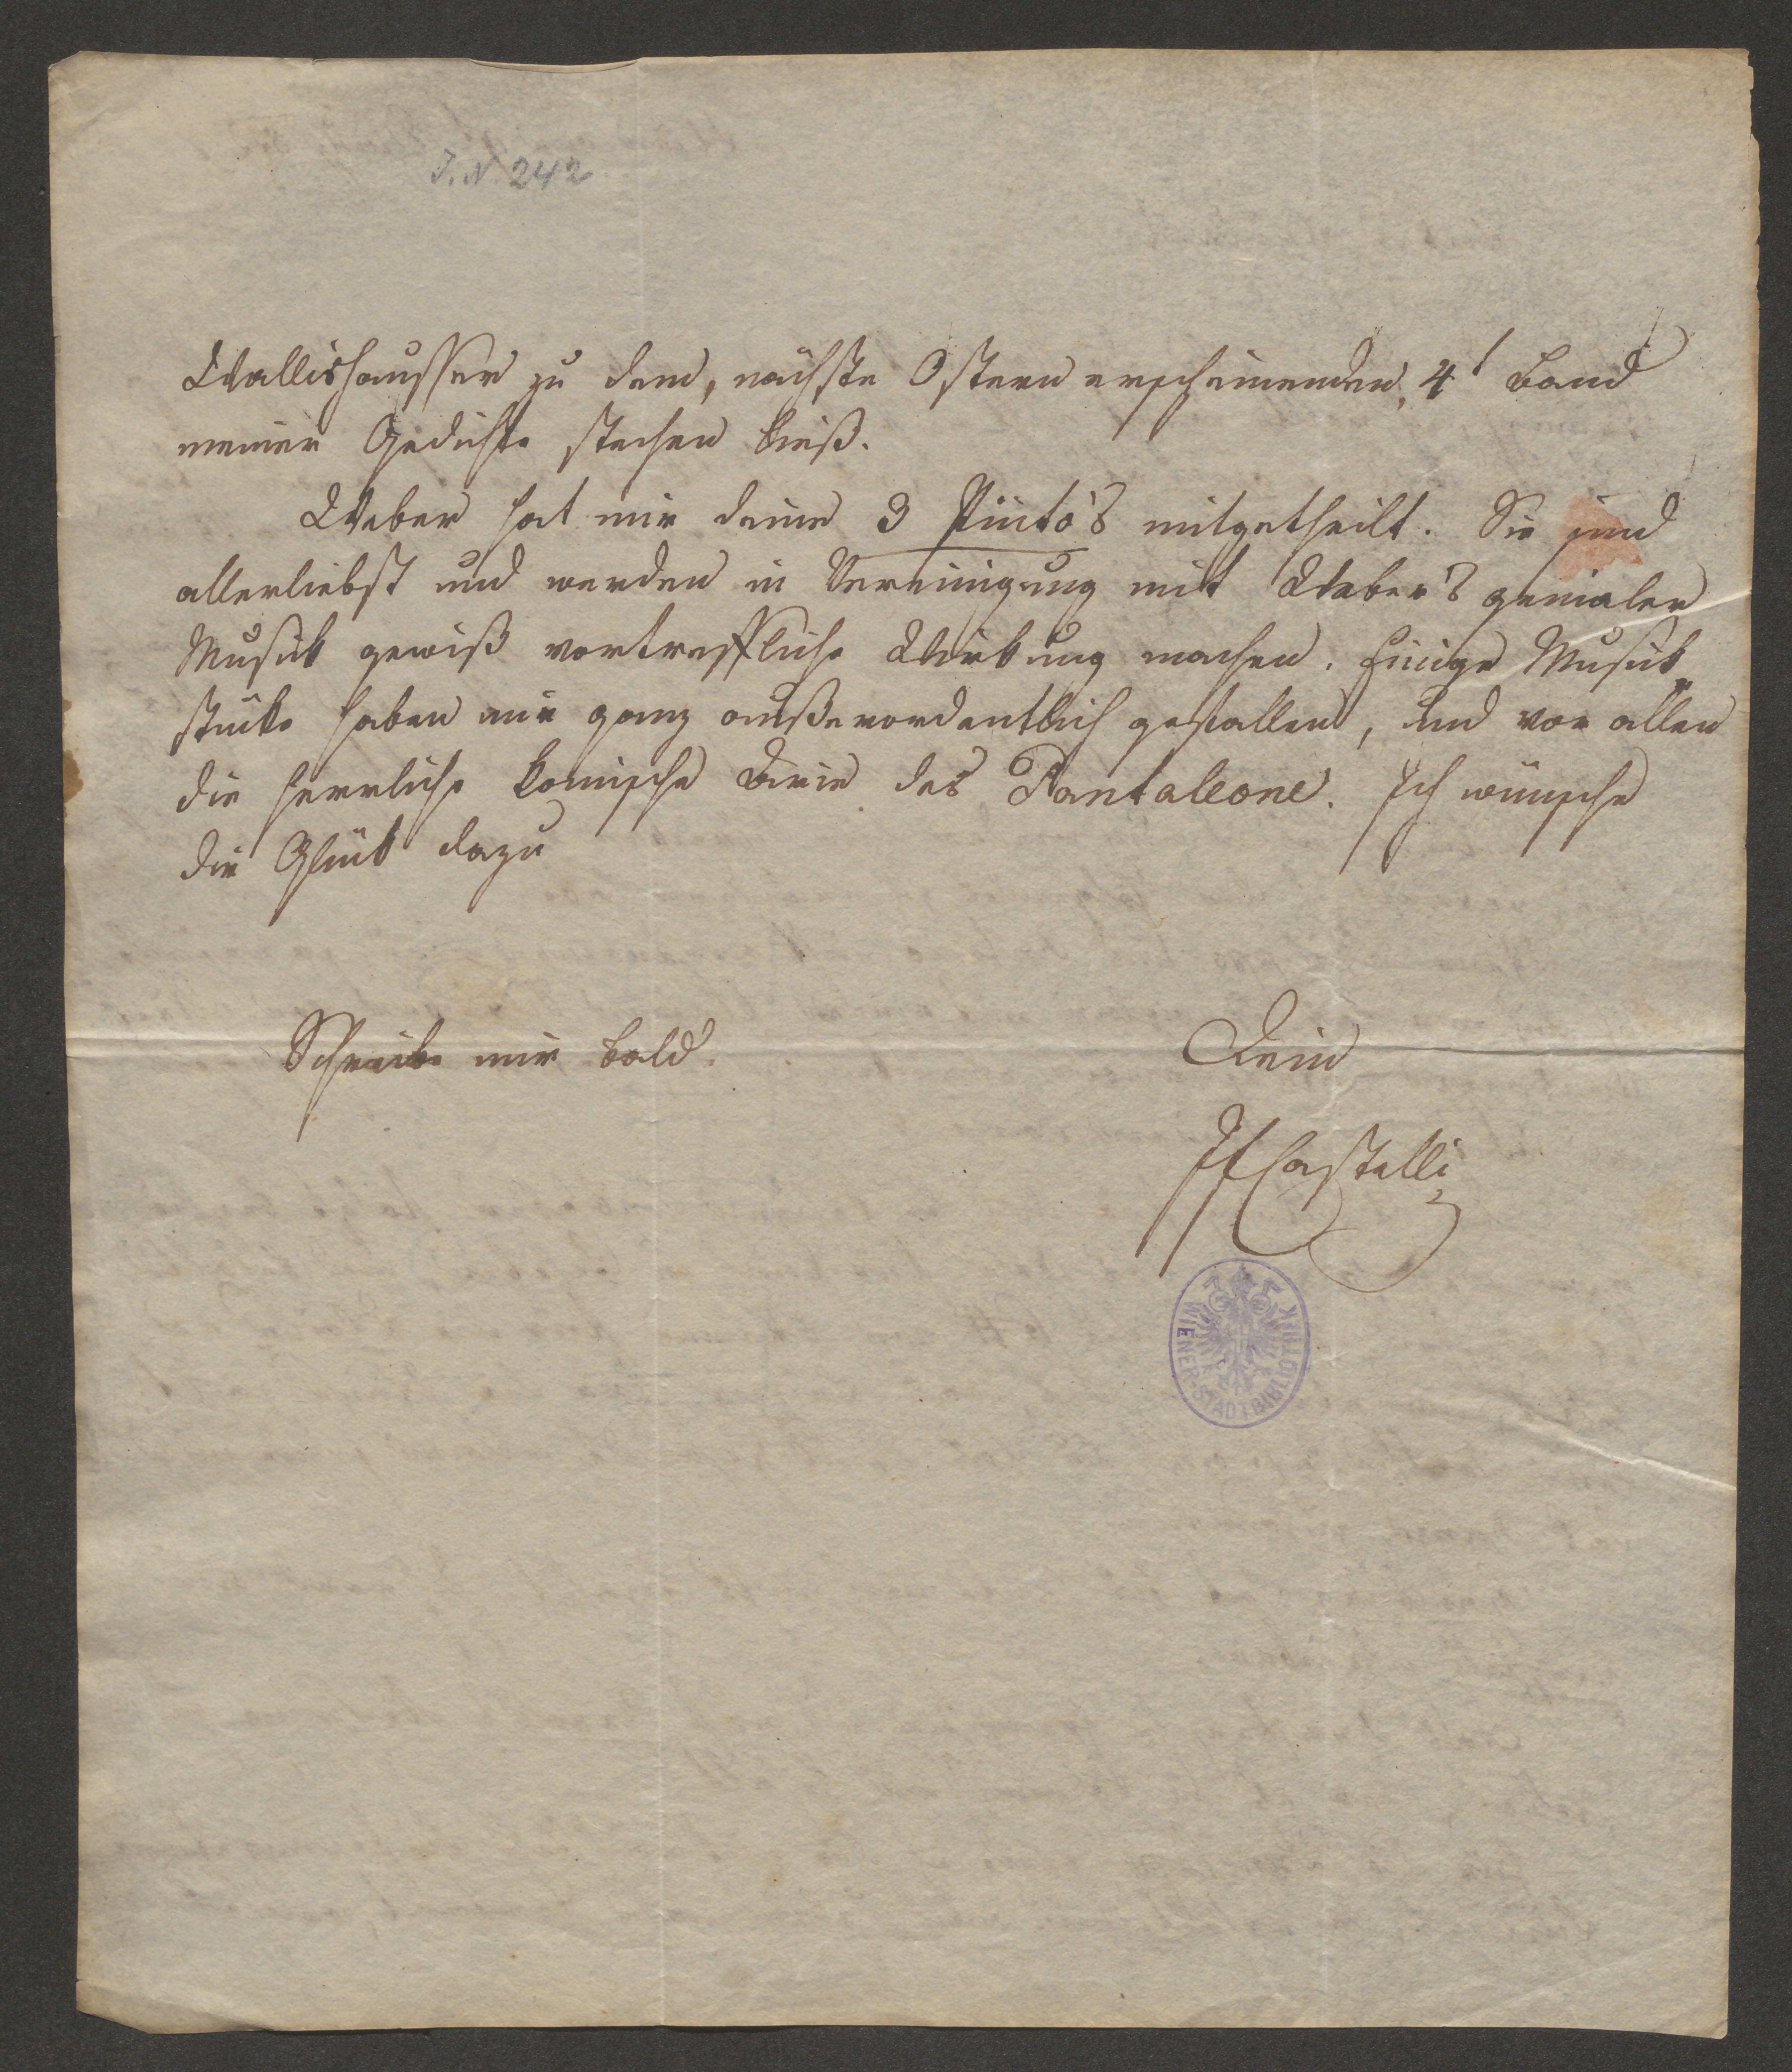 I. N. 242
Wallishausser zu dem, nächste Ostern erscheinenden, 4t Band
meiner Gedichte stechen ließ.
Weber hat mir deine 3 Pinto's mitgetheilt. Sie sind
allerliebst und werden in Vereinigung mit Weber's genialer
Musik gewiß vortreffliche Wirkung machen. Einige Musik-
stücke haben mir ganz außerordentlich gefallen, und vor allen
die herrliche komische Arie des Pantaleone. Ich wünsche
dir Glück dazu
Schreibe mir bald.
Dein
IFCastelli
WIENER-STADTBIBLIOTHEK